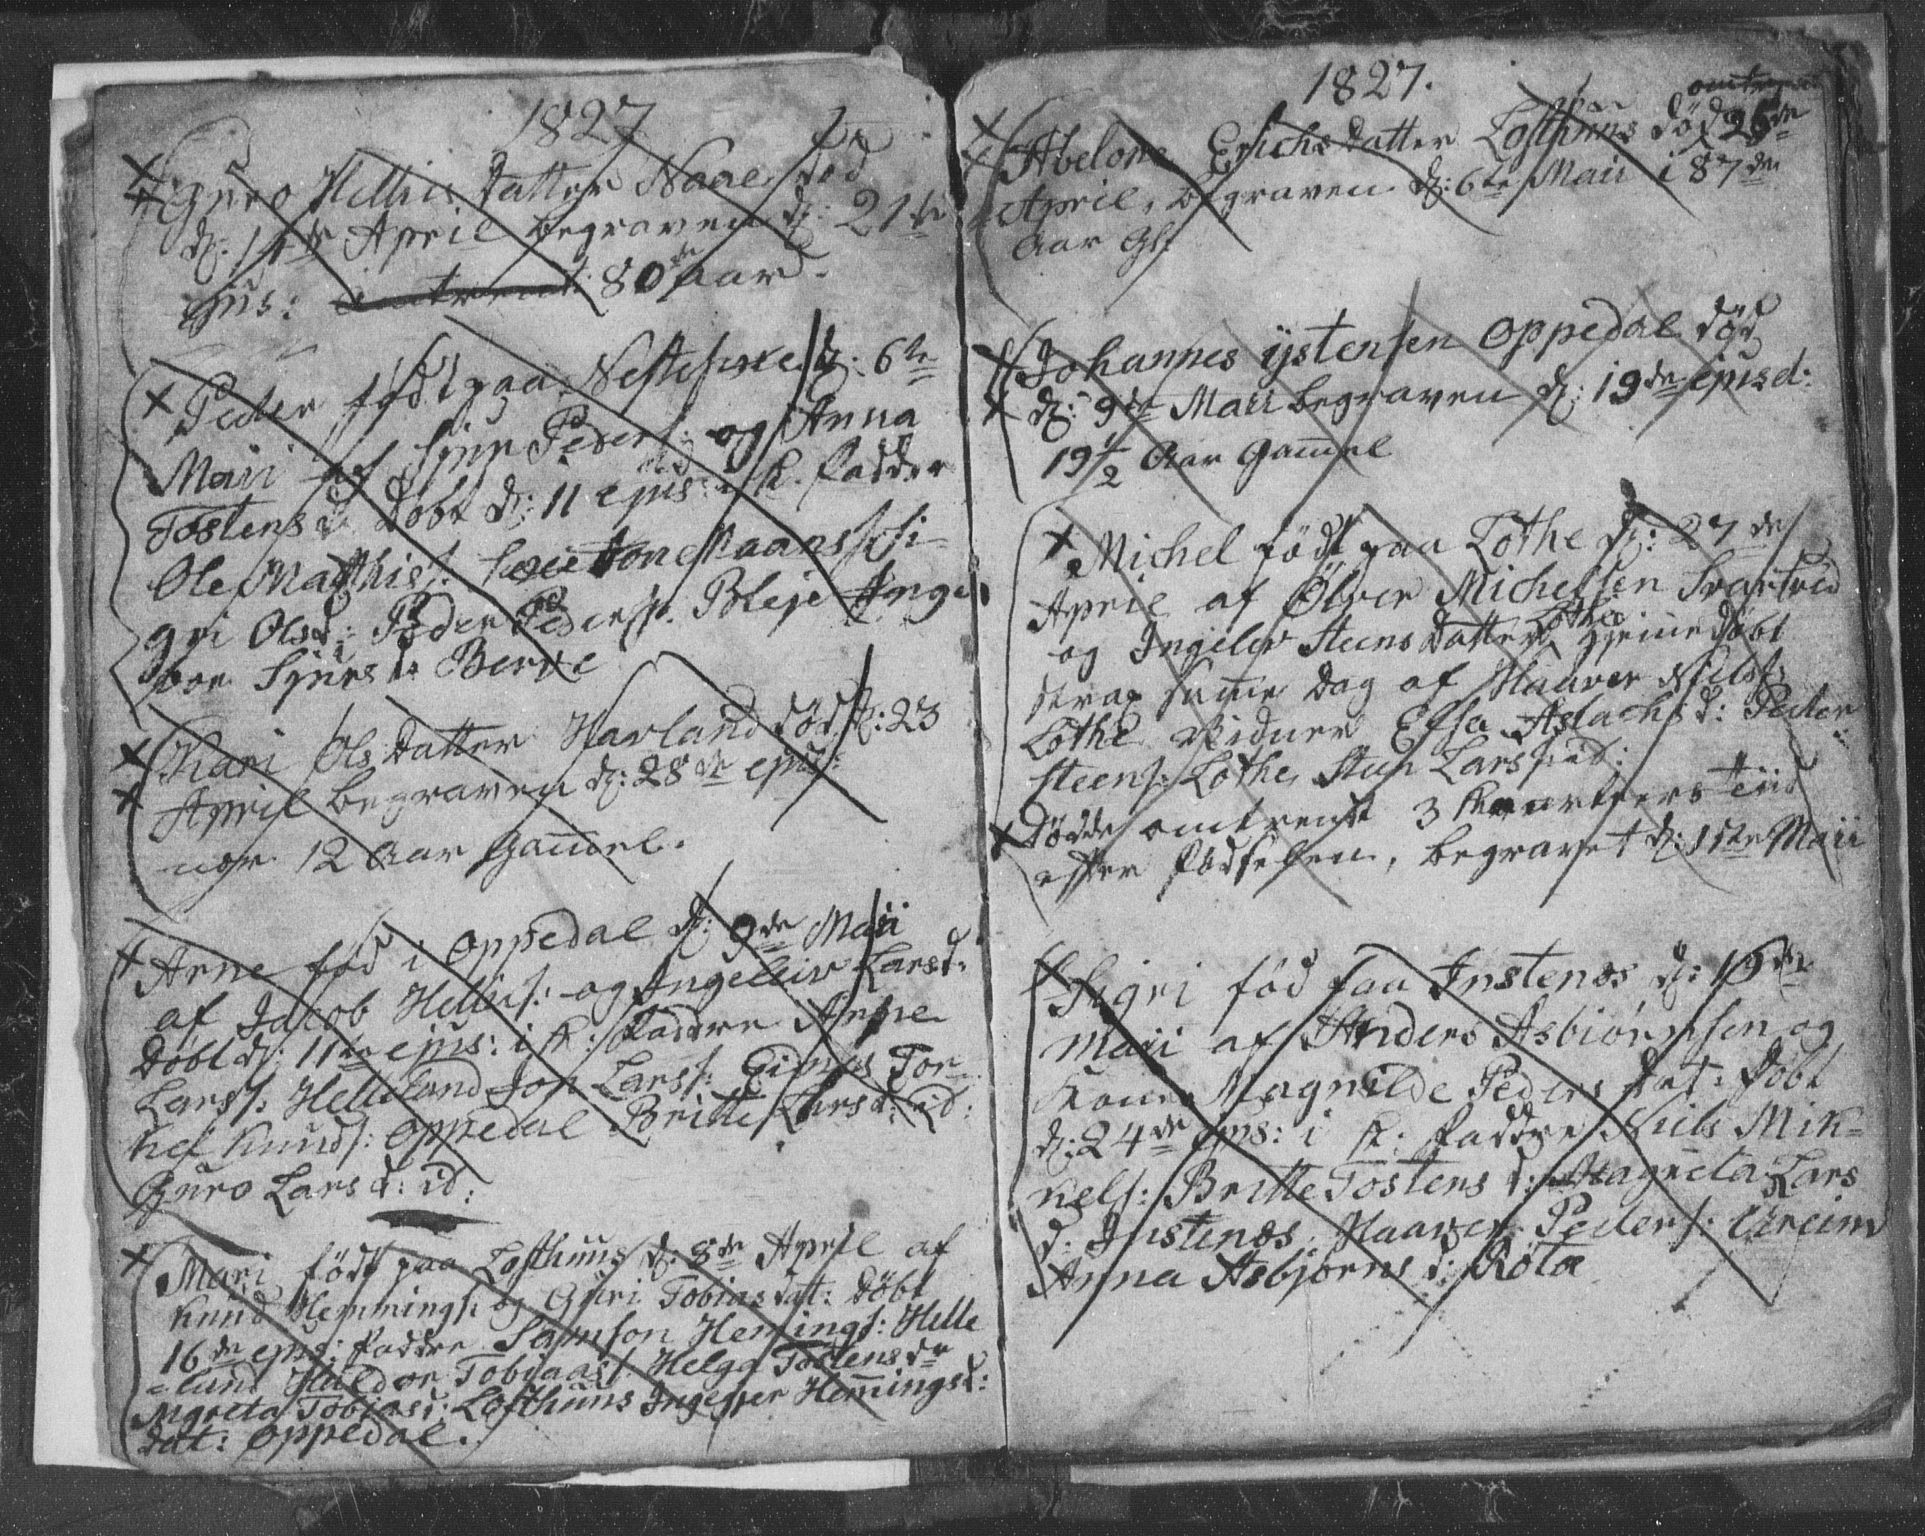 1827
Guro Hellies Datter Naae død
d: 14de April begraven d: 21de
ejus: omtrent 80 aar.
Peder født paa d: 6te
Maii af Sjur Peders: og Anna
Tostensd. Døbt d: 11 ejus: i K. Faddere
Ole Mathis: Tone Maans
gri Olsd: Peder Peders: Bleje Inge
bor Sjurs dr Berve
Kari Ols Datter Harland død d: 23
April begraven d: 28de ejus:
12 Aar Gam̄el.
Arne fød i Oppedal d: 9de Maii
af Jacob Hellies: og Ingeleiv Larsd:
Døbt d: 11te ejus: i K: Faddere Arne
Larss: Helleland Jon Larss: Eidnes Tor-
kel Knuds: Oppedal Britte Larsd: ibid:
Guro Lars d: id:
Mari født paa Lofthuus d: 8de April af
Knud Hemmings: og Guri Tobias dat: Døbt
16de ejus: Faddere Samson Hem̄ings: Helle
-lund Haldor Tobiaas: Helga Tostens dr
Mgreta Tobias d: Lofthuus Ingeger Hem̄ingsd:
dat: Oppedal.
1827.
omtrent
Abelone Erichs Datter Lofthuus død 26de
April, begraven d: 6te Maii i 87de
Aar Gl:
Johannes ijstensen Oppedal død
d: 9de Maii begraven d: 19de ejusd:
19 1/2 Aar Gam̄el
Michel født paa Lothe d: 27de
April af Ölver Michelsen Svartved
og Ingelev Steens Datter Lothe hjemme døbt
strax samme Dag af Haaver Niels:
Lothe Vidner Elsa Aslachs d: Peder
Steens: Lothe, Sten Larss: id:
døde omtrent 3 Kvarteers Tiid
efter Fødselen, begravet d: 15te Maii
Sigri fød paa Instenæs d: 19de
Maii af Anders Asbiørnsen og
Kone Magnilde Peders dat: Døbt
d: 24de ejus: i K: Faddere Niels Mik-
kels: Britte Tostens d: Magreta Lars
d. Instenæs, Haaver Peders: Ureim
Anna Asbjørns d: Røtæ